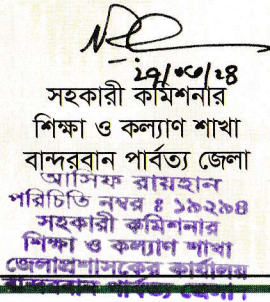 ২৭/০৩/২৪
সহকারী কমিশনার
শিক্ষা ও কল্যাণ শাখা
বান্দরবান পার্বত্য জেলা
আসিফ রায়হান
পরিচিতি নম্বর ঃ ১৯২৯৪
সহকারী কমিশনার
শিক্ষা ও কল্যাণ শাখা
জেলাপ্রশাসকের কার্যালয়
বান্দরবান পার্বত্য জেলা।